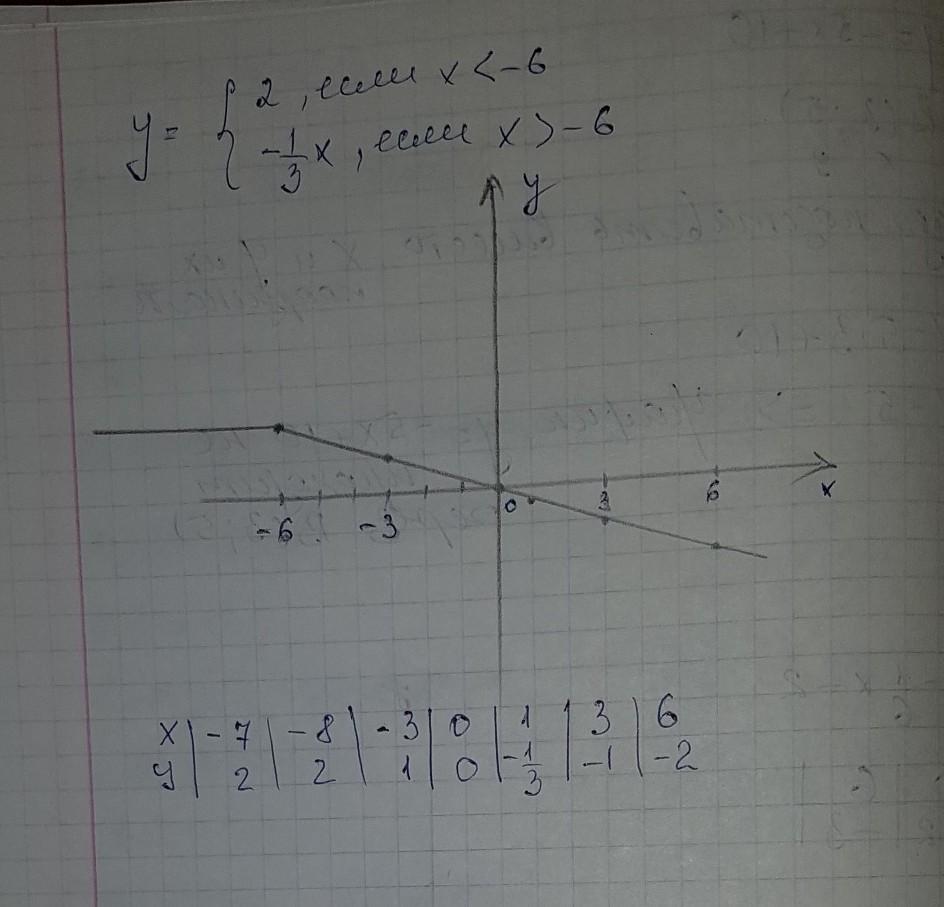 y = { 2, если x < -6
-1/3 x, если x > -6
y
0 3 6 x
-6 -3
x | -7 | -8 | -3 | 0 | 1 | 3 | 6
y | 2 | 2 | 1 | 0 | -1/3 | -1 | -2